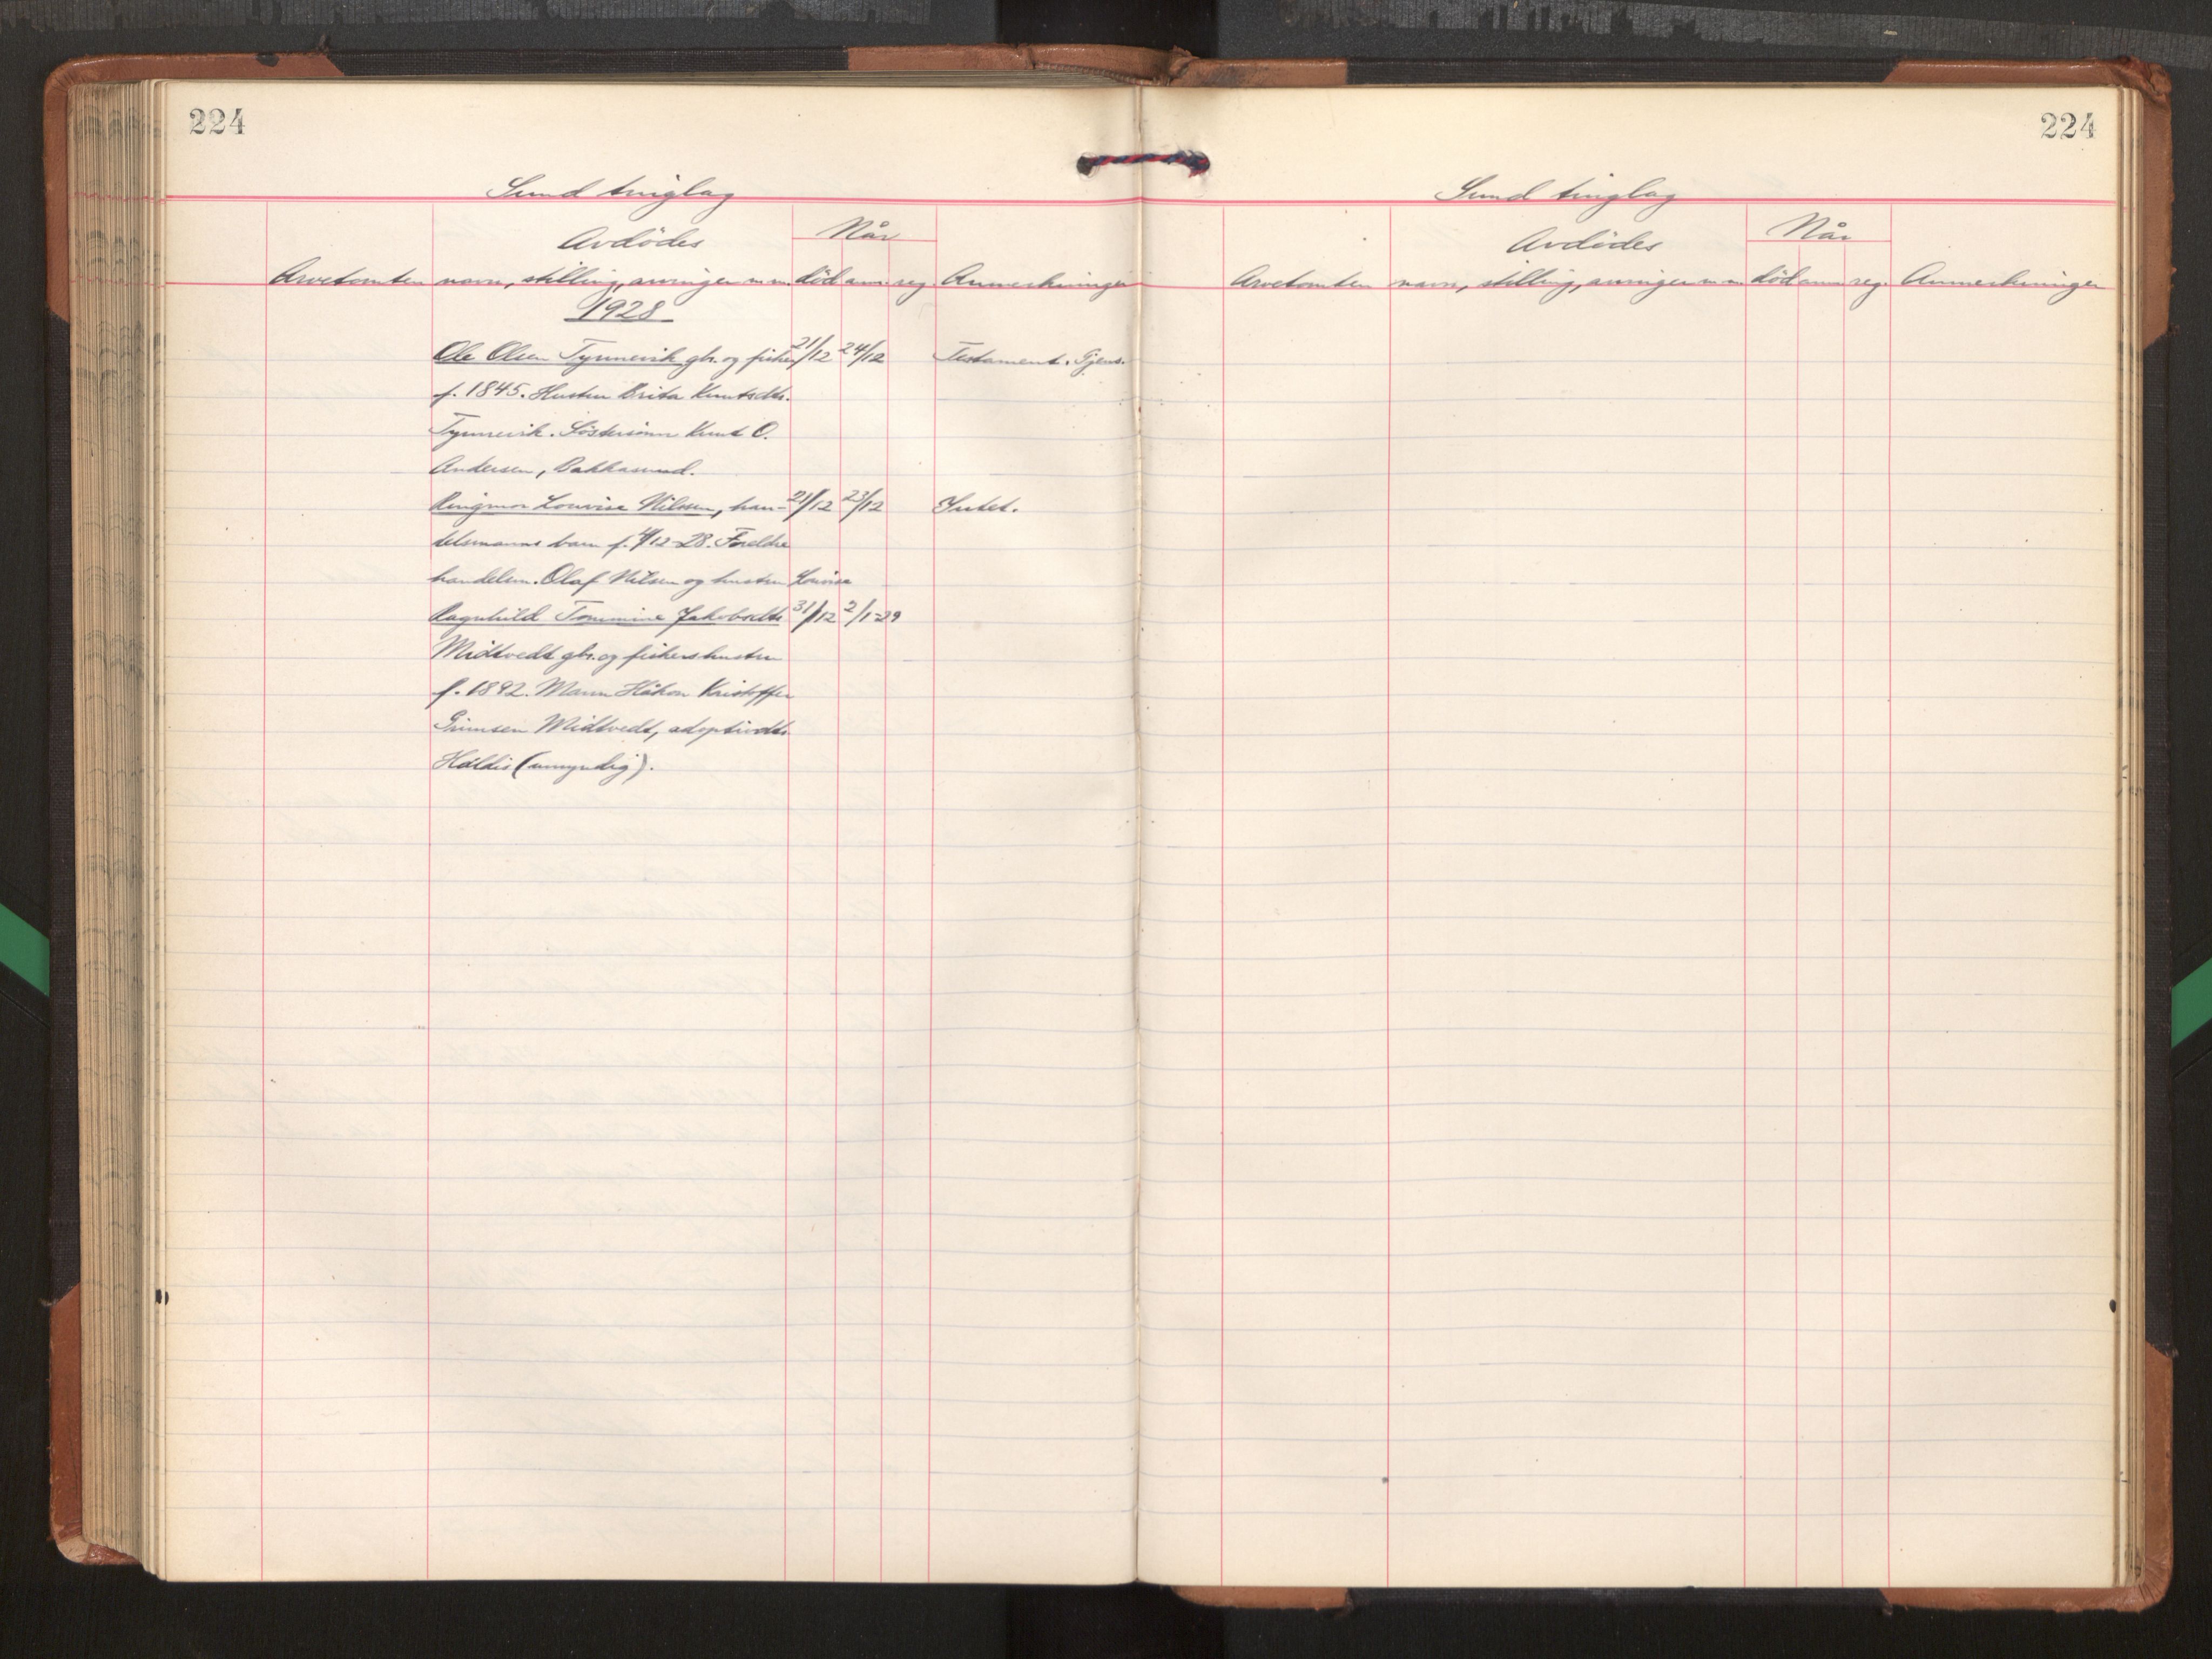 224
Sund tinglag
Avdödes
Når
Arvetomten navn, stilling, arvinger m m. död anm. reg. Anmerkninger
1928
Ole Olsen Tyrnevik gbr. og fisker 21/12 24/12 Testament. Gjens.
f. 1845. Hustru Brita Knutsdtr.
Tyrnevik. Söstersönn Knut O.
Andersen, Bakkasund.
Ringmor Lovise Nilsen, han- 21/12 23/12 Intet.
delsmanns barn f. /12-28. Foreldre
handelsm. Olaf Nilsen og hustru Lovise
Ragnhild Tommine Jakobsdtr 31/12 2/1-29
Midtvedt gbr. og fiskers hustru
f. 1892. Mann Håkon Kristoffer
Grimsen Midtvedt, adoptivdtr.
Halldis (umyndig).
224
Sund tinglag
Avdödes
Når
Arvetomten navn, stilling, arvinger m m. död anm reg. Anmerkninger